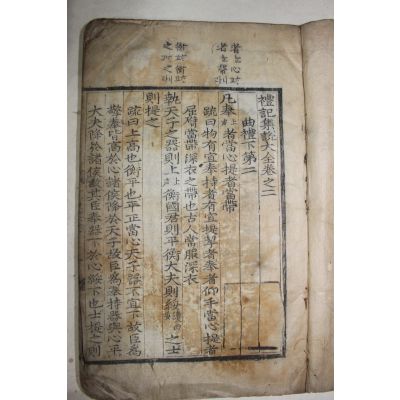 禮記集說大全卷之二
曲禮下第二
凡奉者當心提者當帶
疏曰物有宜奉持者有宜提挈者奉者仰手當心提者
屈臂當帶深衣之帶也古人常服深衣
執天子之器則上衡國君則平衡大夫則綏之士
則提之
疏曰上高也衡平也平正當心天子器不宜下故臣爲
擎奉皆高於心諸侯降於天子故臣爲奉持器與心平
大夫降於諸侯故其臣奉器下於心綏下也士提之則